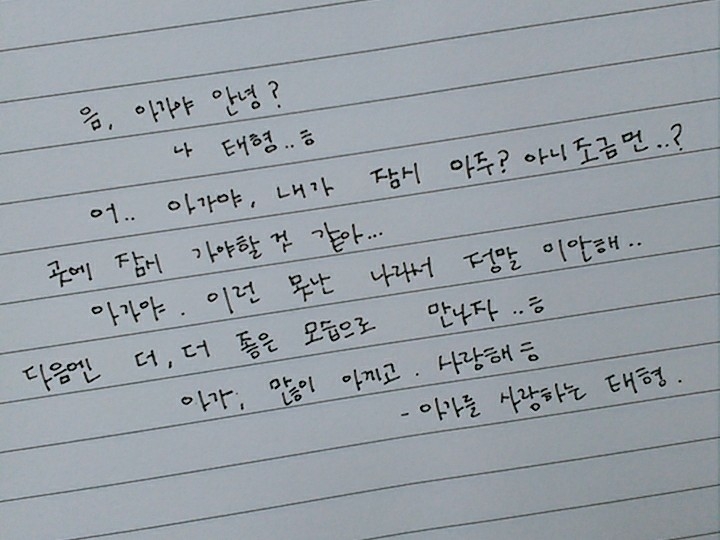 음, 아가야 안녕?
나 태형..ㅎ
어.. 아가야, 내가 잠시 아주? 아니 조금먼..?
곳에 잠시 가야할 것 같아...
아가야. 이런 못난 나라서 정말 미안해..
다음엔 더, 더 좋은 모습으로 만나자..ㅎ
아가, 많이 아끼고. 사랑해ㅎ
- 아가를 사랑하는 태형.